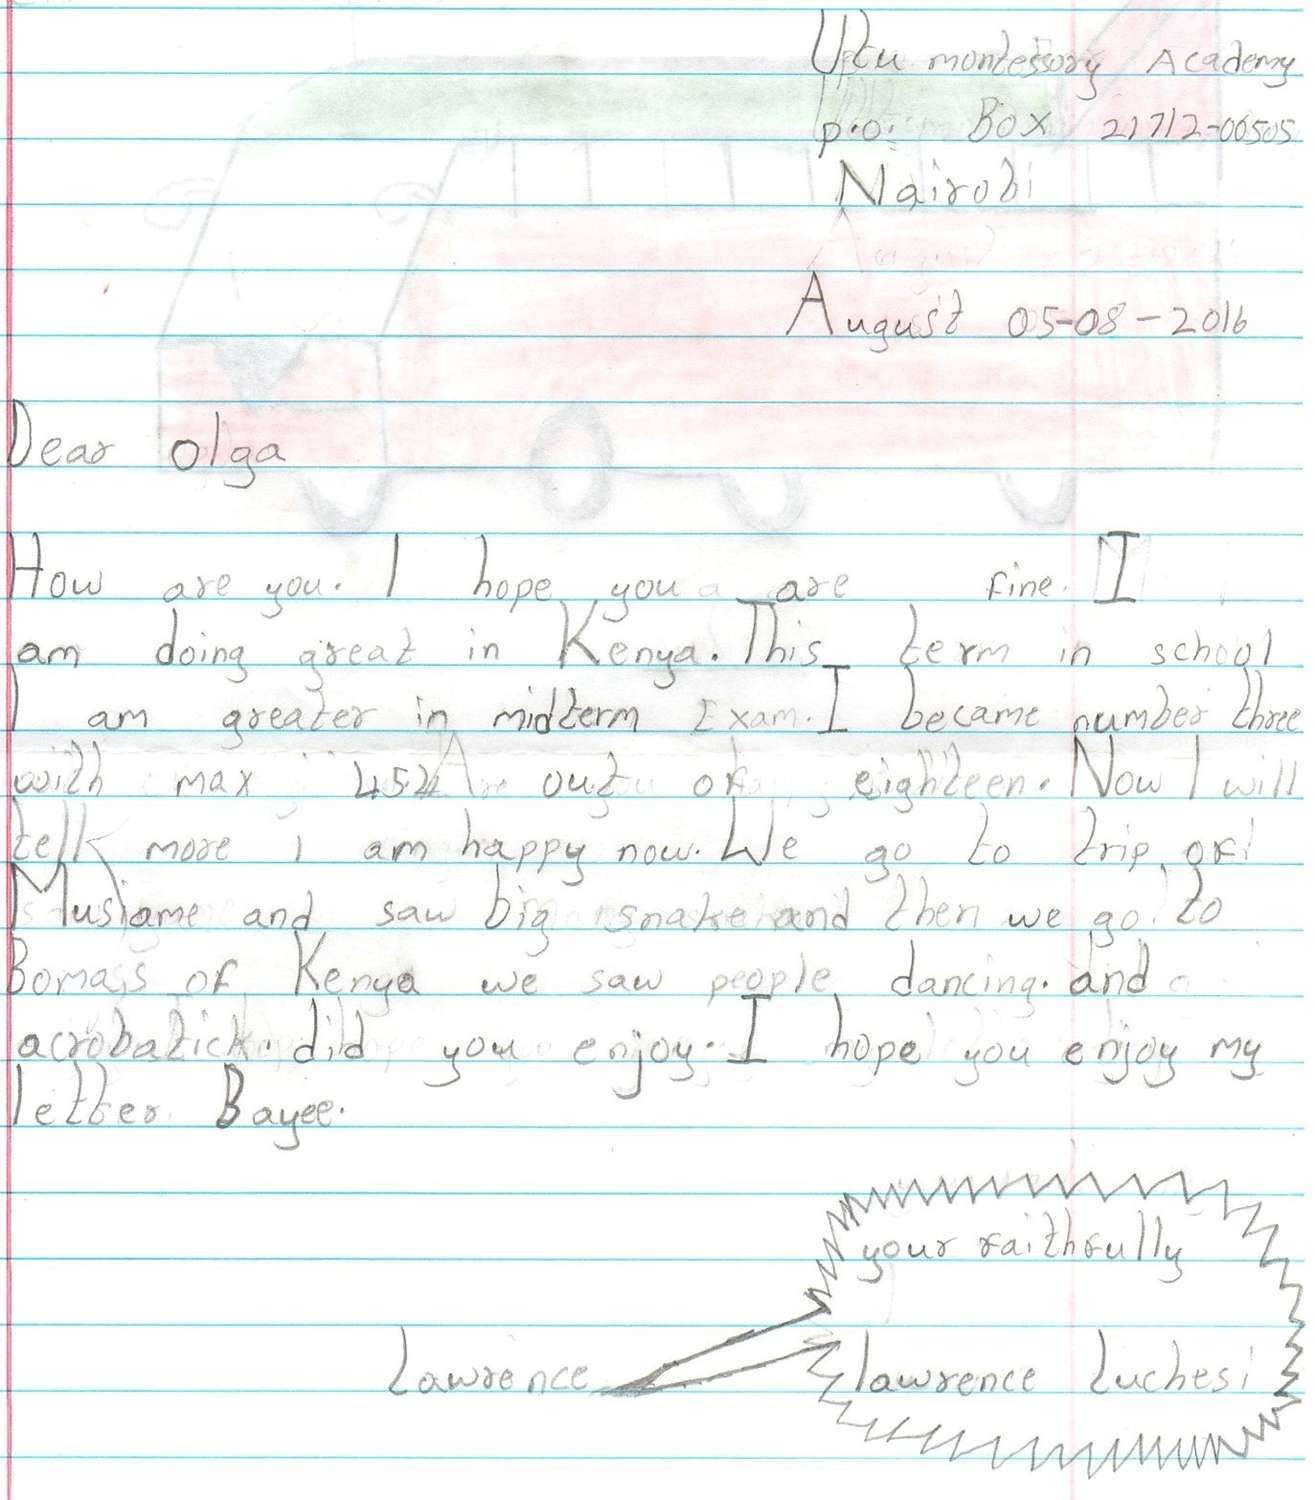 Utu montessory Academy
p.o. Box 21712-00505
Nairobi
August 05-08-2016
Dear olga
How are you. I hope you are fine. I
am doing great in Kenya. This term in school
I am greater in midterm Exam. I became number three
with max 454 out of eighteen. Now I will
tell more i am happy now. We go to trip of
Musiame and saw big snake and then we go to
Bomass of Kenya we saw people dancing. and
acrobatick. did you enjoy. I hope you enjoy my
letter. Bayee.
your faithfully
Lawrence lawrence luchesi